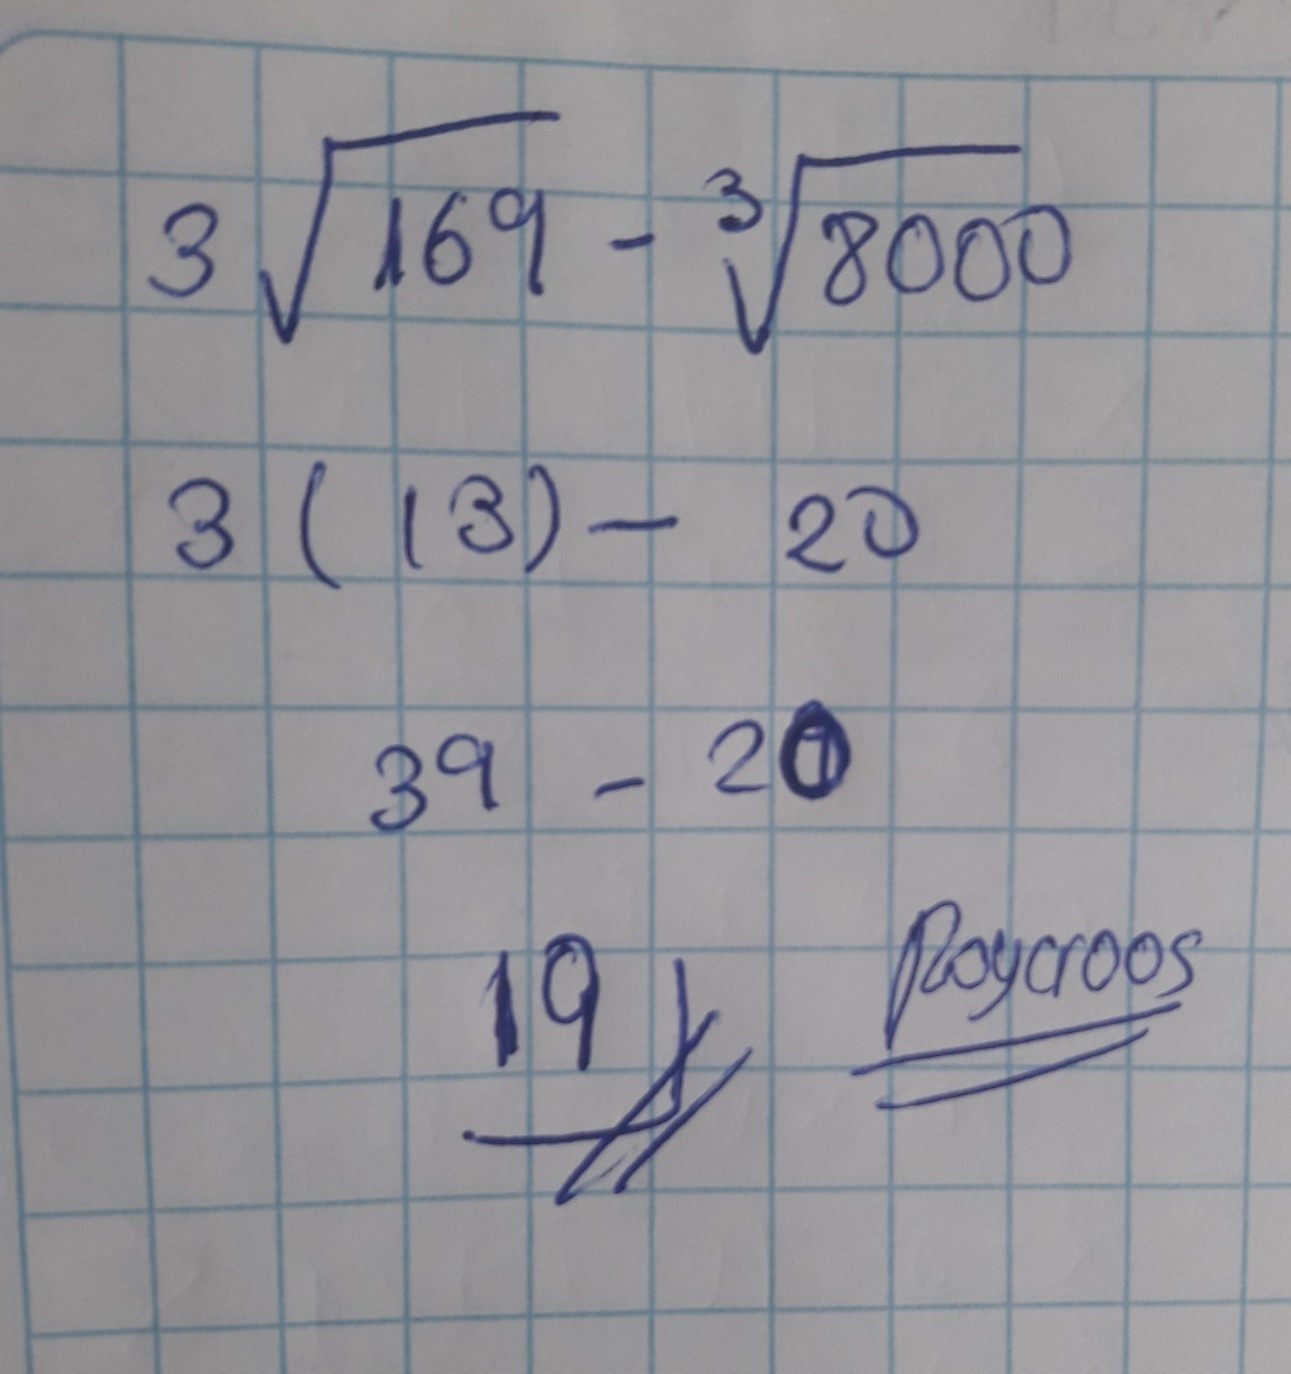 3√169 - ³√8000
3 ( 13 ) - 20
39 - 20
19
Roycroos